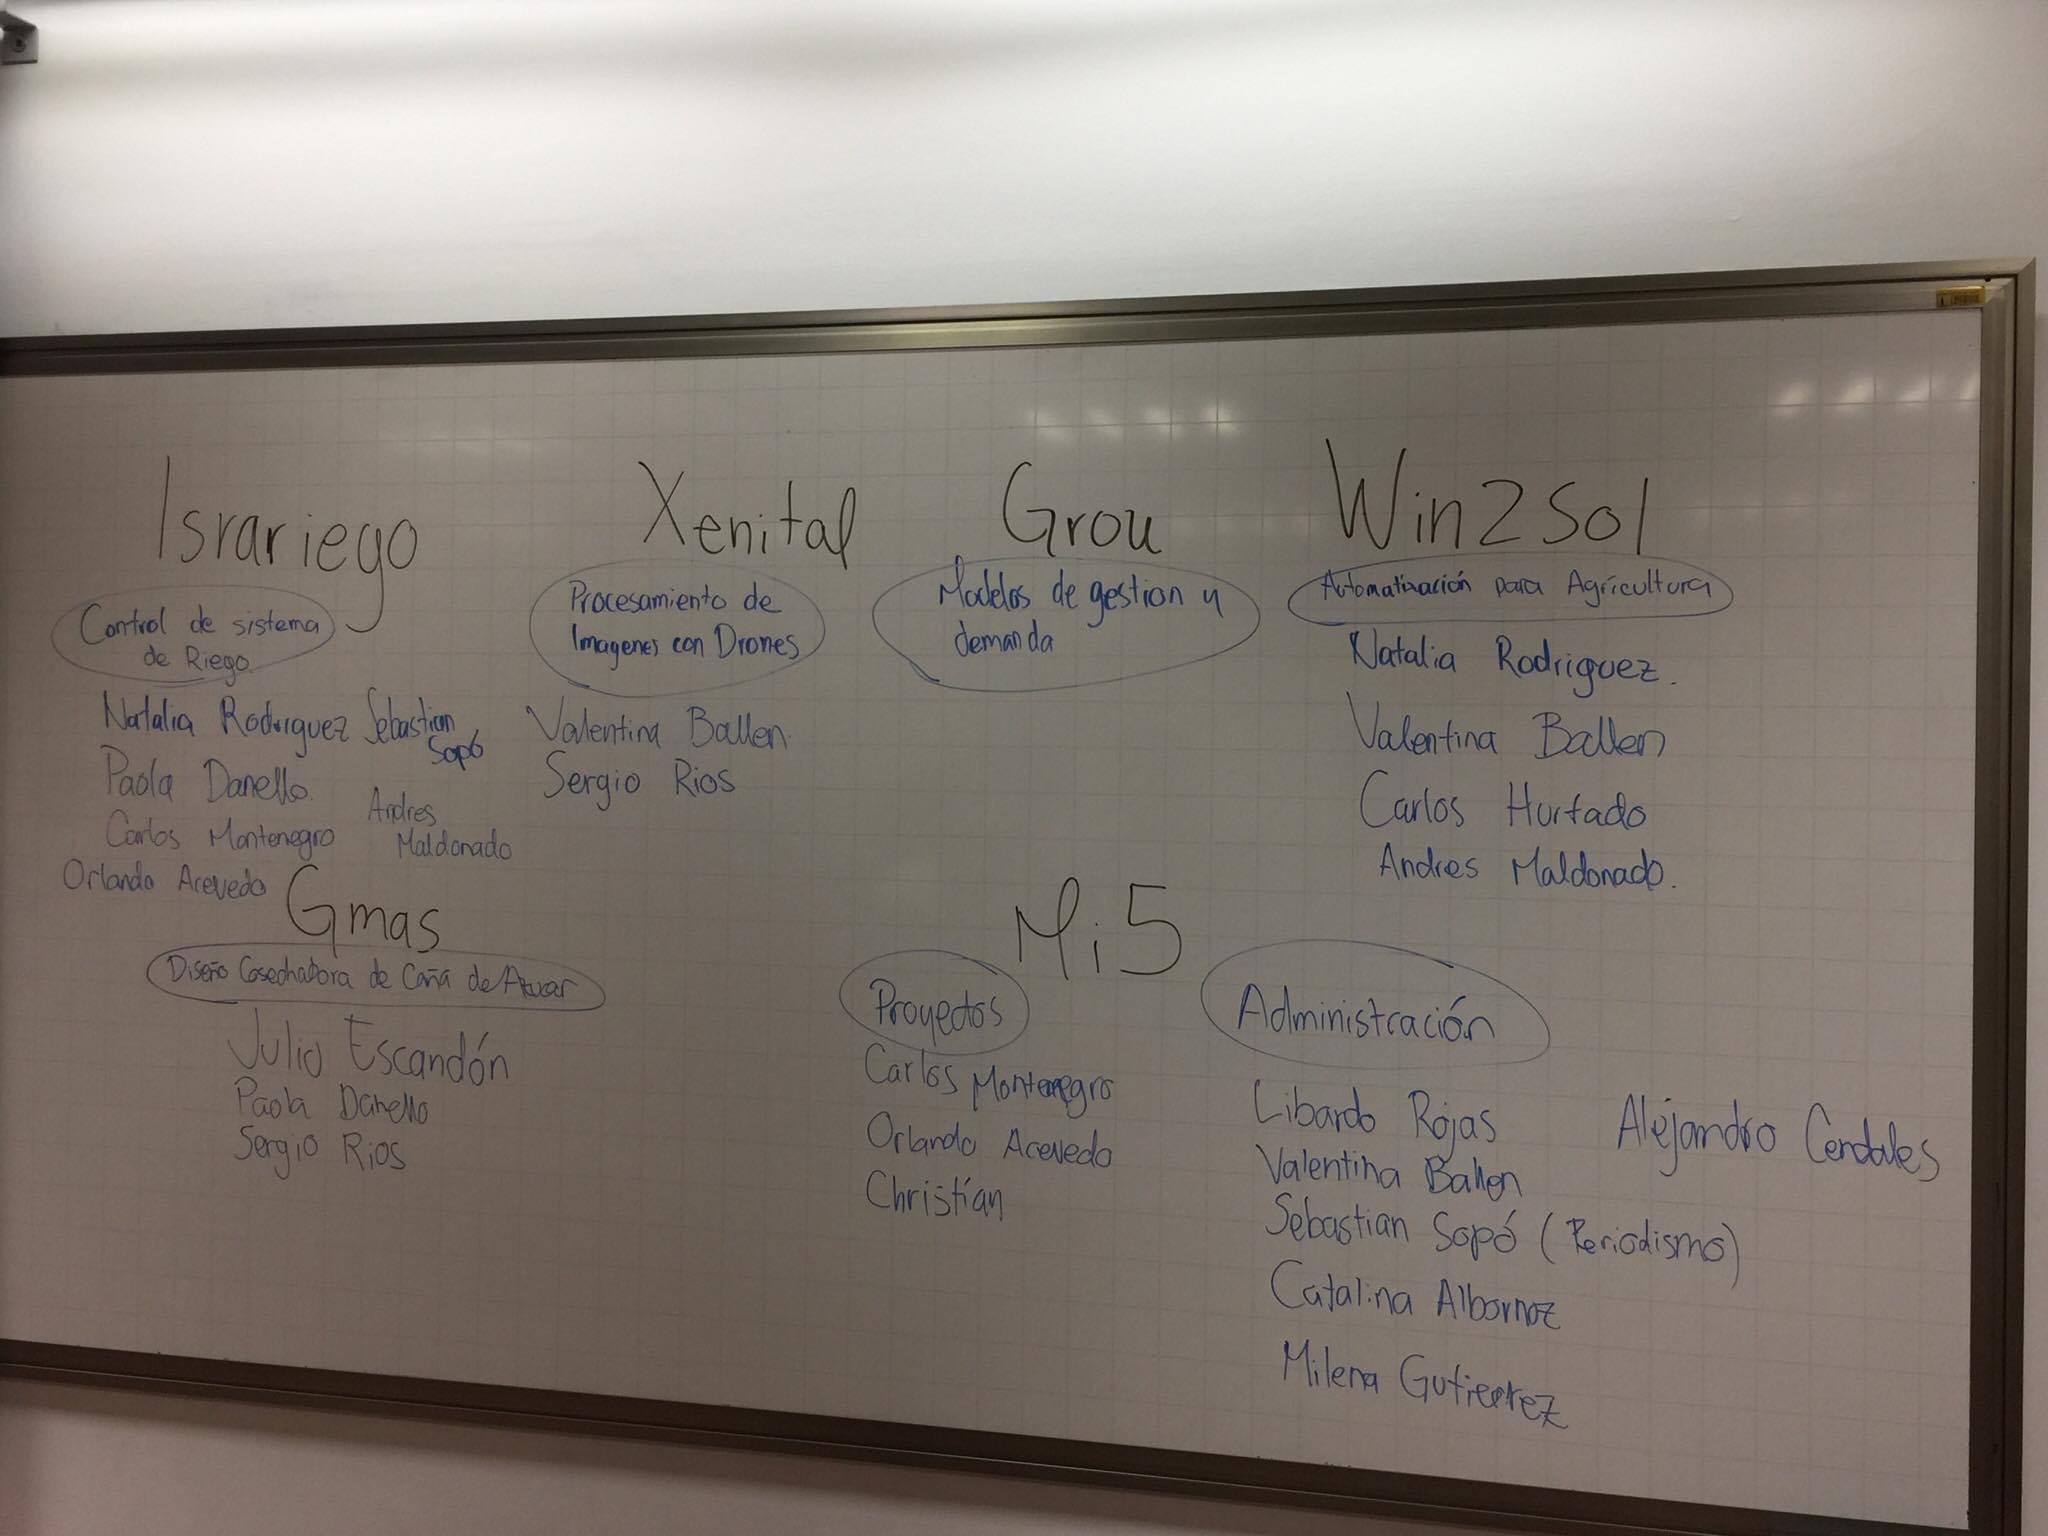 Israriego
Control de sistema
de Riego
Natalia Rodriguez Sebastian
Sopó
Paola Danello.
Andres
Carlos Montenegro
Maldonado
Orlando Acevedo
Xenital
Procesamiento de
Imagenes con Drones
Valentina Ballen
Sergio Rios
Grou
Modelos de gestion y
demanda
Win2Sol
Automatización para Agricultura
Natalia Rodriguez.
Valentina Ballen
Carlos Hurtado
Andres Maldonado.
Gmas
Diseño Cosechadora de Caña de Azucar
Julio Escandón
Paola Danello
Sergio Rios
Mi5
Proyectos
Carlos Montenegro
Orlando Acevedo
Christian
Administración
Libardo Rojas
Valentina Ballen
Sebastian Sopó (Periodismo)
Catalina Albornoz
Milena Gutierrez
Alejandro Cendales